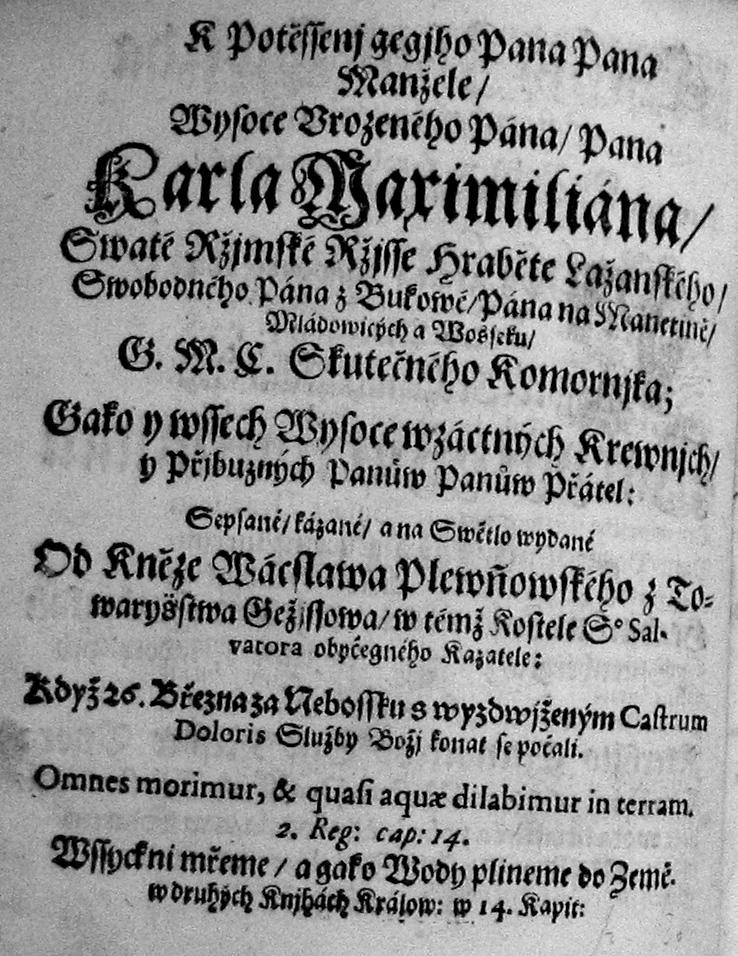 K Potěssenj gegjho Pana Pana
Manžele/
Wysoce Vrozeného Pána/ Pana
Karla Maximiliána/
Swaté Ržjmské Ržjsse Hraběte Lažanského/
Swobodného Pána z Bukowé/ Pána na Manetině/
Mladowicých a Wosseku/
G. M. C. Skutečného Komornjka;
Gako y wssech Wysoce wzáctných Krewnjch/
y Přjbuzných Panůw Panůw Přátel:
Sepsané/ kázané/ a na Swětlo wydané
Od Kněze Wácslawa Plewňowského z To-
waryšstwa Gežjssowa/ w témž Kostele S° Sal-
vatora obyčegného Kazatele:
Když 26. Března za Nebossku s wyzdwjženým Castrum
Doloris Služby Božj konat se počali.
Omnes morimur, & quasi aquæ dilabimur in terram.
2. Reg: cap: 14.
Wssyckni mřeme / a gako Wody plineme do Země.
w druhých Knjhách Králow: w 14. Kapit: